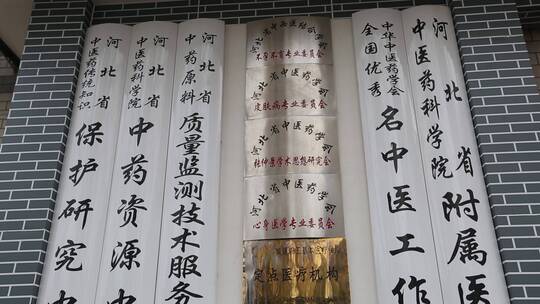 河北省
中医药传统知识
保护研究中
河北省
中医药科学院
中药资源中
河北省
中药原料
质量监测技术服务
河北省中西医结合学会
不孕不育专业委员会
河北省中医药学会
皮肤病专业委员会
河北省中医药学会
杜仲景学术思想研究会
河北省中医药学会
心身医学专业委员会
定点医疗机构
中华中医药学会
全国优秀
名中医工作
河北省
中医药科学院
附属医